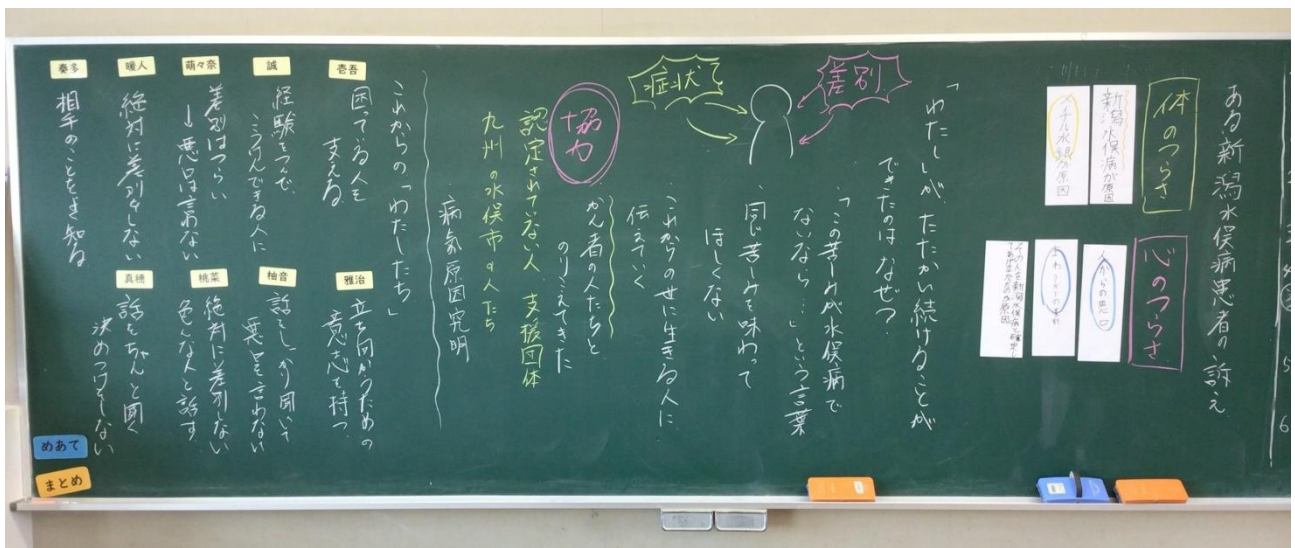 ある新潟水俣病患者の訴え
体のつらさ
新潟水俣病が原因
メチル水銀が原因
心のつらさ
人からの悪口
「わたしが、たたかい続けることが
できたのはなぜ?
差別
症状
・「この苦しみが水俣病で
ないなら…」という言葉
・同じ苦しみを味わって
ほしくない
・これからの世に生きる人に
伝えていく
協力
かん者の人たちと
のりこえてきた
認定されていない人、支援団体
九州の水俣市の人たち
・病気原因究明
これからの「わたしたち」
壱吾
困っている人を
支える
雅治
立ち向かうための
意志を持つ
誠
経験をつんで
柚音
話をしっかり聞いて
悪口を言わない
萌々奈
差別はつらい
→悪口は言わない
桃菜
絶対に差別しない
色んな人と話す
暖人
絶対に差別をしない
真穂
話をちゃんと聞く
決めつけをしない
奏多
相手のことをよく知る
めあて
まとめ
5
6